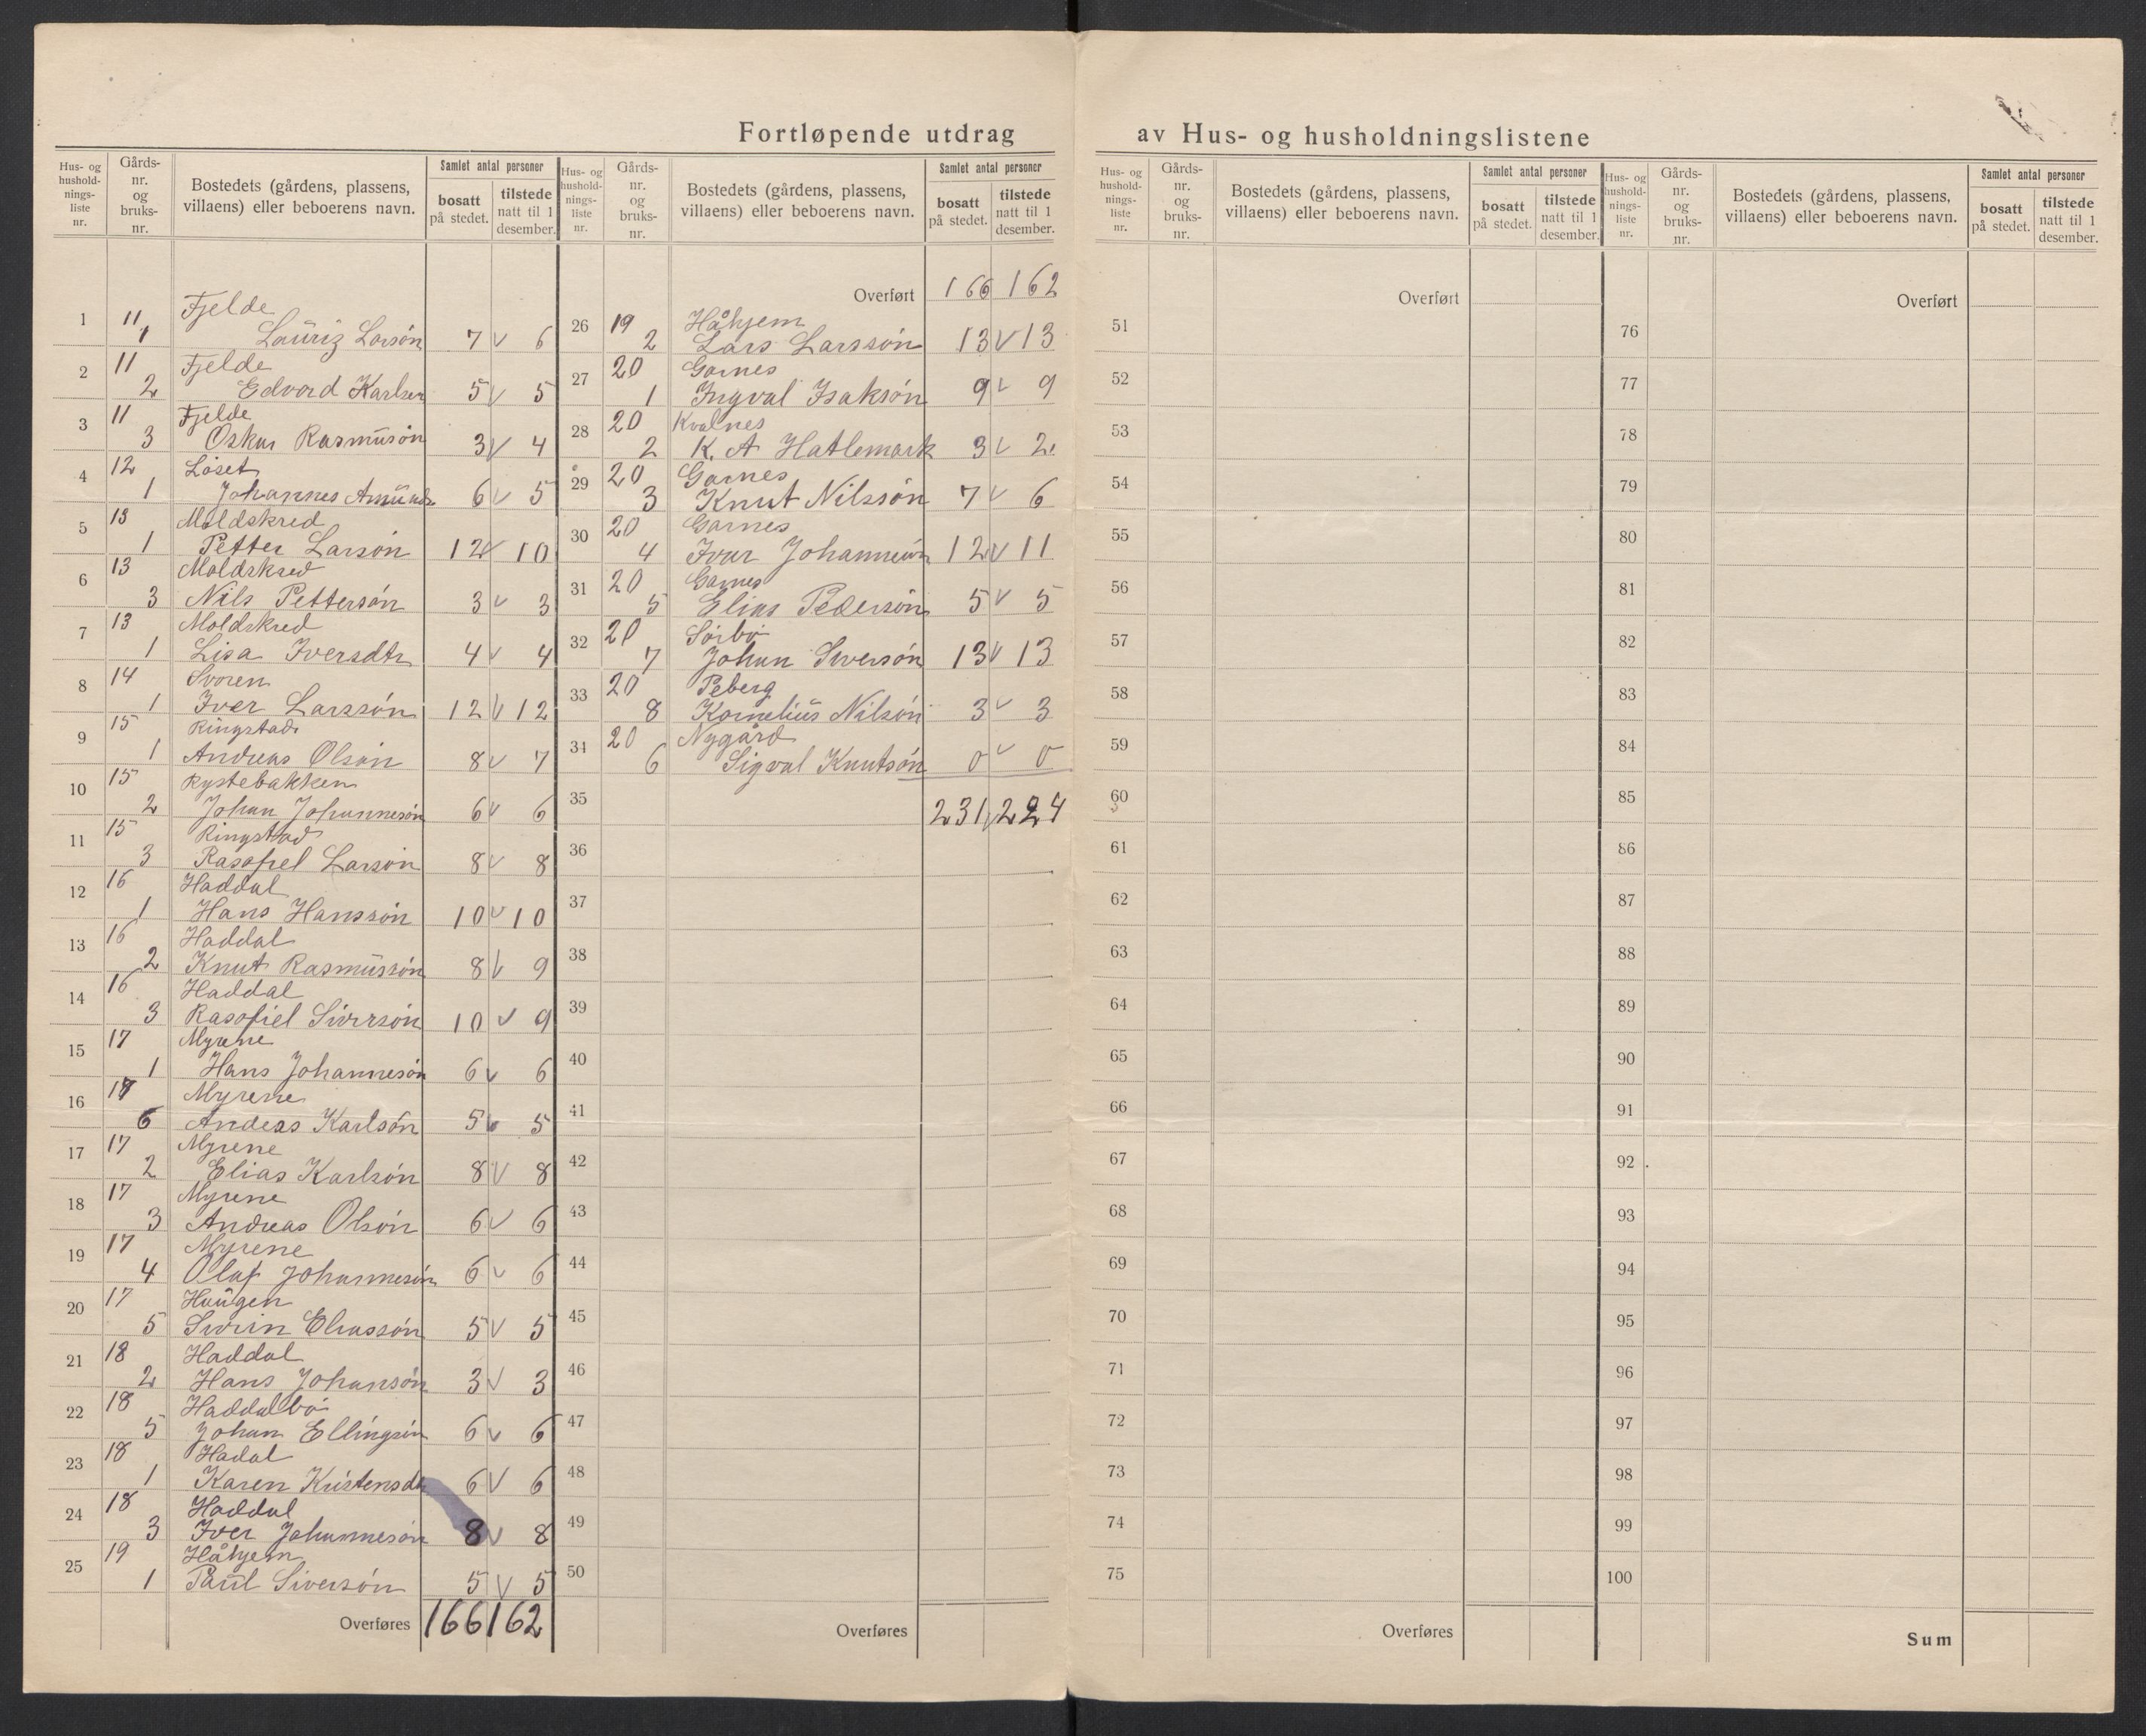 Fortløpende utdrag av Hus- og husholdningslistene
Hus- og husholdnings-liste nr. Gårds-nr. og bruks-nr. Bostedets (gårdens, plassens, villaens) eller beboerens navn. Samlet antal personer bosatt på stedet. tilstede natt til 1 desember.
1 11 Fjelde
1 Lauriz Larsón 7 v 6
2 11 Fjelde
2 Edvard Karlsen 5 v 5
3 11 Fjelde
3 Oskar Rasmusón 3 v 4
4 12 Löset
1 Johannes Amunds 6 v 5
5 13 Moldskred
1 Petter Larsón 12 v 10
6 13 Moldskred
3 Nils Pettersón 3 v 3
7 13 Moldskred
1 Lisa Iversdtr 4 v 4
8 14 Svoren
1 Iver Larssón 12 v 12
9 15 Ringstad
1 Andreas Olsón 8 v 7
10 15 Rystebakken
2 Johan Johannesón 6 v 6
11 15 Ringstad
3 Rasofiel Larsón 8 v 8
12 16 Haddal
1 Hans Hanssón 10 v 10
13 16 Haddal
2 Knut Rasmussón 8 v 9
14 16 Haddal
3 Rasofiel Siversón 10 v 9
15 17 Myrene
1 Hans Johannesón 6 v 6
16 17 Myrene
6 Anders Karlsón 5 v 5
17 17 Myrene
2 Elias Karlsón 8 v 8
18 17 Myrene
3 Andreas Olsón 6 v 6
19 17 Myrene
4 Olaf Johannesón 6 v 6
20 17 Haugen
5 Sivrin Eliassón 5 v 5
21 18 Haddal
2 Hans Johansón 3 v 3
22 18 Haddalbö
5 Johan Ellingsón 6 v 6
23 18 Hadal
1 Karen Kristensdtr 6 v 6
24 18 Haddal
3 Iver Johannesón 8 v 8
25 19 Håhjem
1 Paul Siversón 5 v 5
Overføres 166 162
Hus- og husholdnings-liste nr. Gårds-nr. og bruks-nr. Bostedets (gårdens, plassens, villaens) eller beboerens navn. Samlet antal personer bosatt på stedet. tilstede natt til 1 desember.
Overført 166 162
26 19 Håhjem
2 Lars Larssón 13 v 13
27 20 Garnes
1 Ingval Isaksón 9 v 9
28 20 Kvalnes
2 K. A Hatlemark 3 v 2
29 20 Garnes
3 Knut Nilssón 7 v 6
30 20 Garnes
4 Ivar Johannesón 12 v 11
31 20 Garnes
5 Elias Pedersón 5 v 5
32 20 Sörbö
7 Johan Siversón 13 v 13
33 20 Peberg
8 Kornelius Nilsón 3 v 3
34 20 Nygård
6 Sigval Knutsón 0 v 0
35 231 v 224
36
37
38
39
40
41
42
43
44
45
46
47
48
49
50
Overføres
Hus- og husholdnings-liste nr. Gårds-nr. og bruks-nr. Bostedets (gårdens, plassens, villaens) eller beboerens navn. Samlet antal personer bosatt på stedet. tilstede natt til 1 desember.
Overført
51
52
53
54
55
56
57
58
59
60
61
62
63
64
65
66
67
68
69
70
71
72
73
74
75
Overføres
Hus- og husholdnings-liste nr. Gårds-nr. og bruks-nr. Bostedets (gårdens, plassens, villaens) eller beboerens navn. Samlet antal personer bosatt på stedet. tilstede natt til 1 desember.
Overført
76
77
78
79
80
81
82
83
84
85
86
87
88
89
90
91
92
93
94
95
96
97
98
99
100
Sum